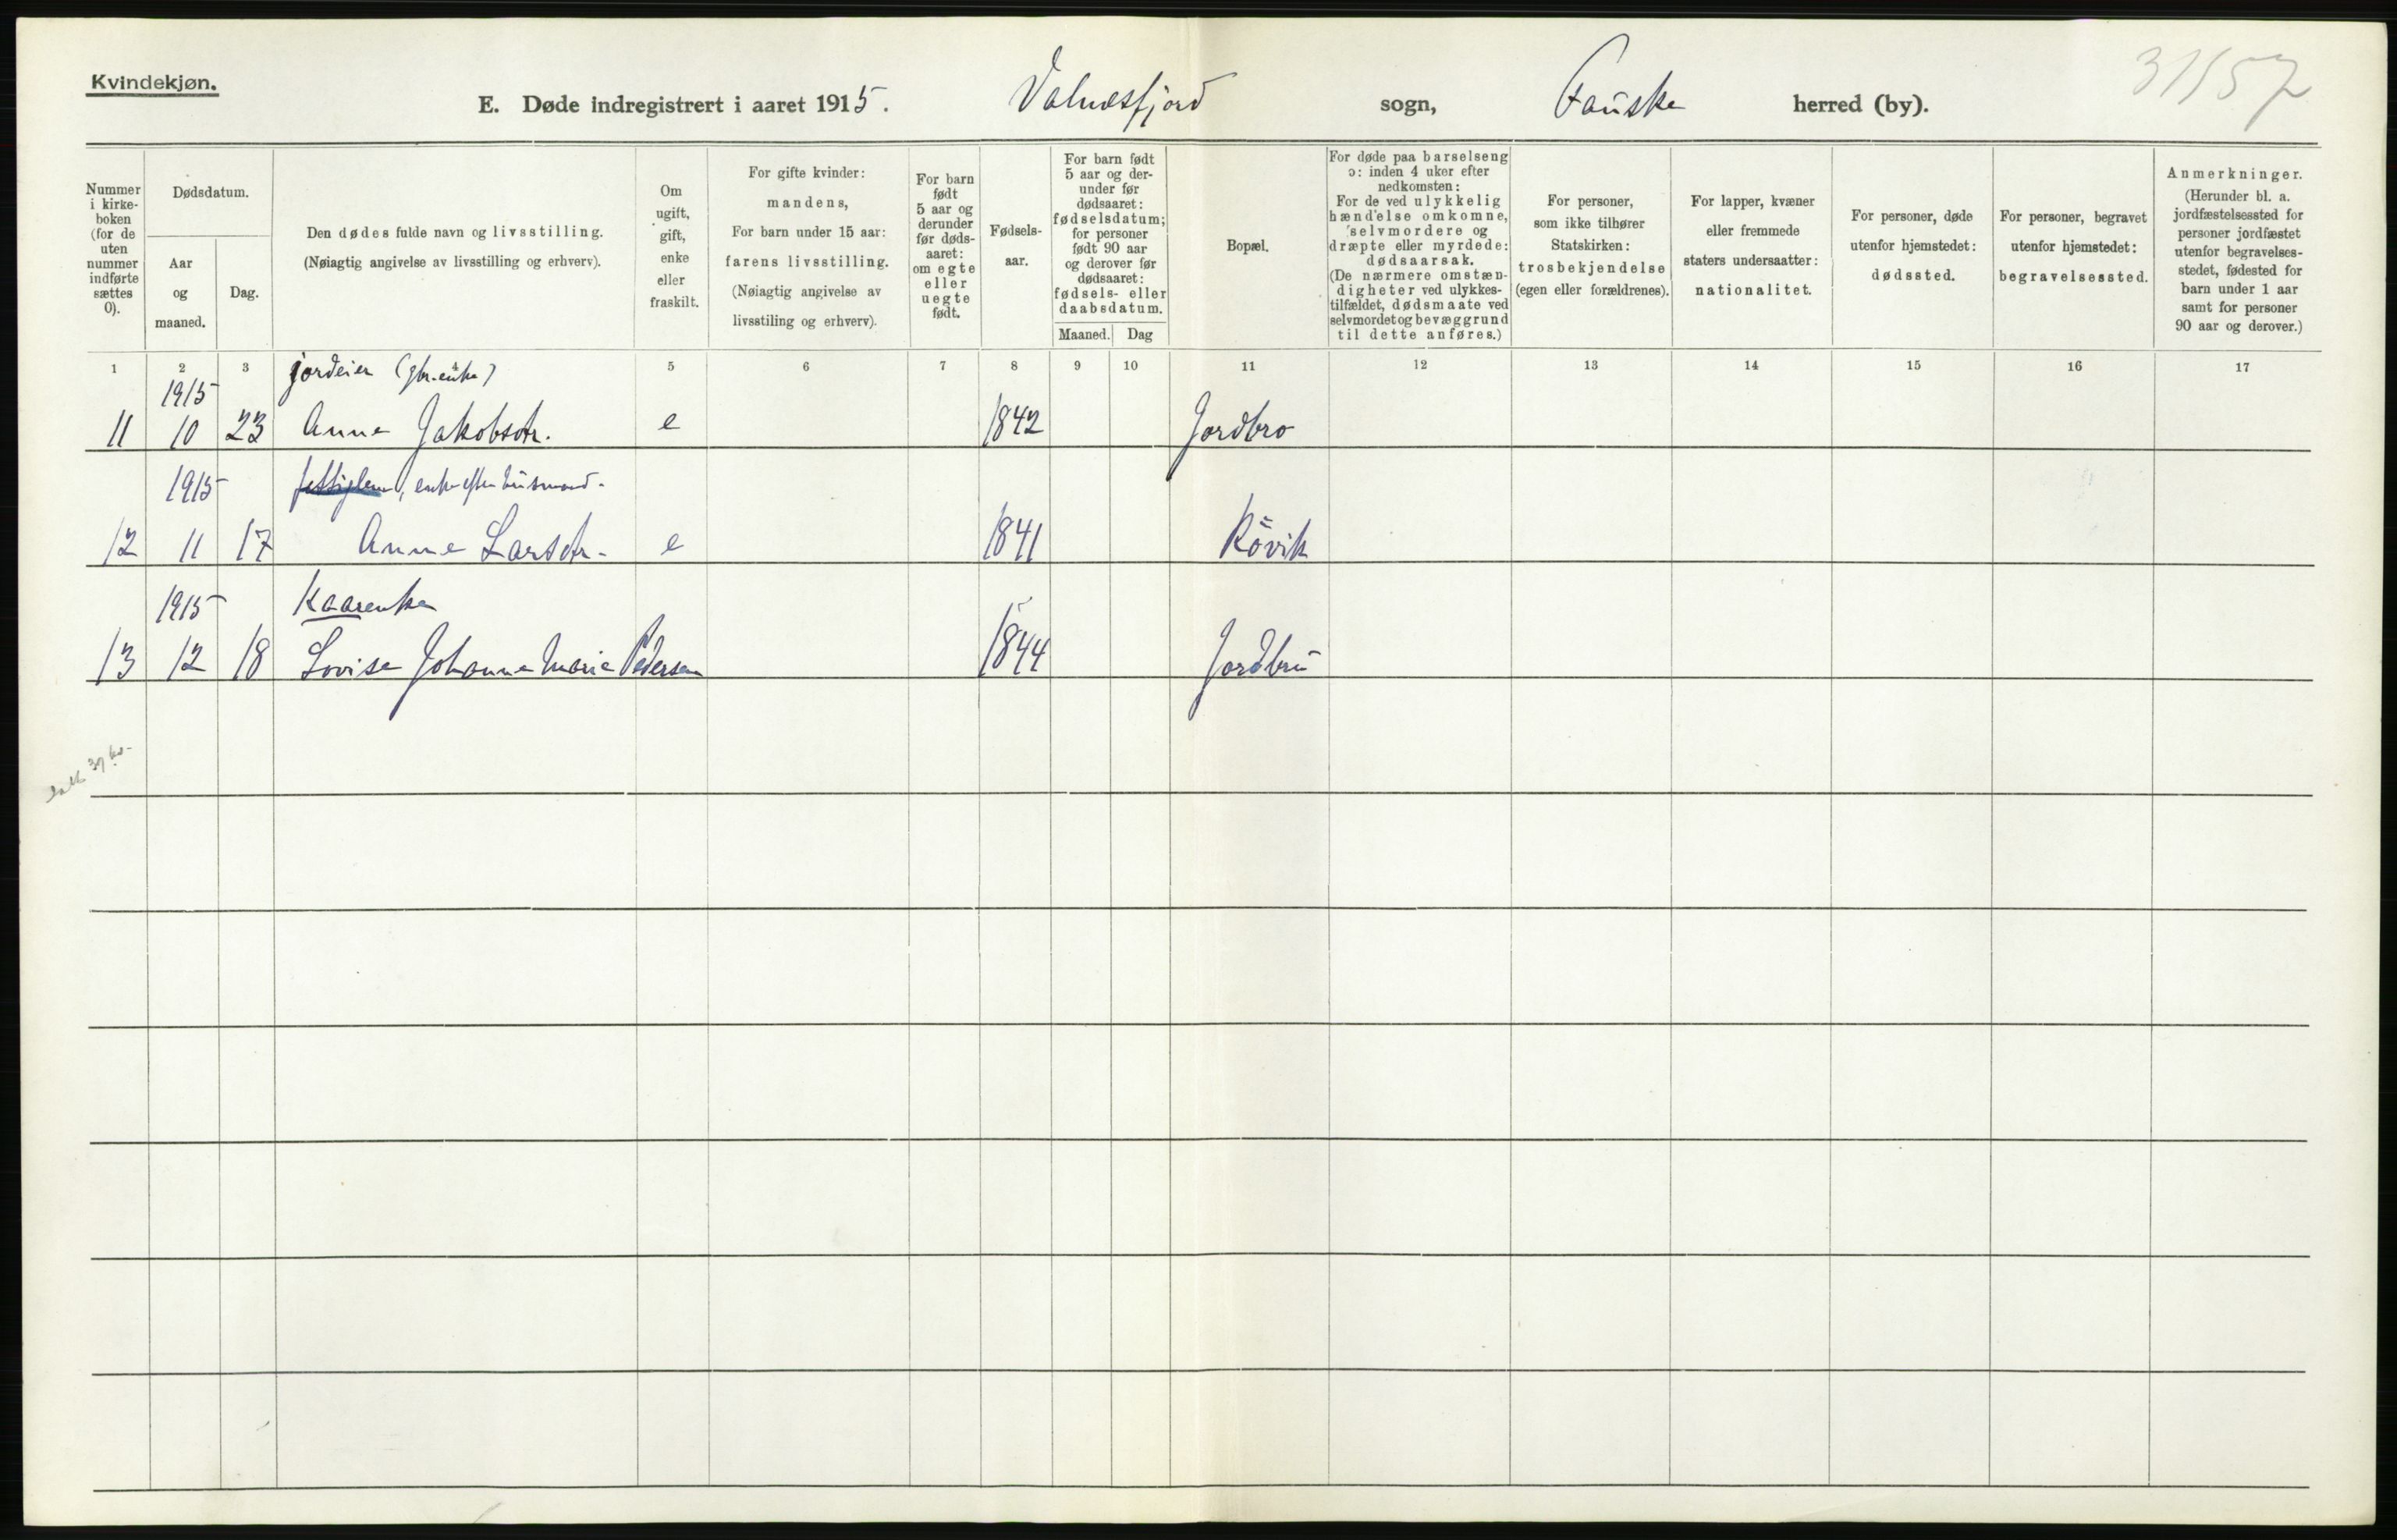 Kvindekjøn.
E. Døde indregistrert i aaret 1915. Valnesfjord sogn, Fauske herred (by).
31/57
Nummer i kirke-boken (for de uten nummer indførte sættes 0).
Dødsdatum.
Aar og maaned.
Dag.
Den dødes fulde navn og livsstilling.
(Nøiagtig angivelse av livsstilling og erhverv).
Om ugift, gift, enke eller fraskilt.
For gifte kvinder: mandens,
For barn under 15 aar: farens livsstilling.
(Nøiagtig angivelse av livsstiling og erhverv).
For barn født 5 aar og derunder før døds-aaret: om egte eller uegte født.
Fødsels-aar.
For barn født 5 aar og der-under før dødsaaret: fødselsdatum; for personer født 90 aar og derover før dødsaaret: fødsels- eller daabsdatum.
Maaned. Dag
Bopæl.
For døde paa barselseng ɔ: inden 4 uker efter nedkomsten:
For de ved ulykkelig hændelse omkomne, selvmordere og dræpte eller myrdede: dødsaarsak.
(De nærmere omstæn-digheter ved ulykkes-tilfældet, dødsmaate ved selvmordet og bevæggrund til dette anføres.)
For personer, som ikke tilhører Statskirken: trosbekjendelse (egen eller forældrenes).
For lapper, kvæner eller fremmede staters undersaatter: nationalitet.
For personer, døde utenfor hjemstedet: dødssted.
For personer, begravet utenfor hjemstedet: begravelsessted.
Anmerkninger.
(Herunder bl. a. jordfæstelsessted for personer jordfæstet utenfor begravelses-stedet, fødested for barn under 1 aar samt for personer 90 aar og derover.)
1 2 3 5 6 7 8 9 10 11 12 13 14 15 16 17
1915 jordeier (gbr.enke)
11 10 23 Anne Jakobsdtr. e 1842 Jordbro
1915 fattiglem, enke efter husmand.
12 11 17 Anne Larsdtr. e 1841 Kövik
1915 Kaarenke
13 12 18 Lovise Johanna Marie Pedersen 1844 Jordbru